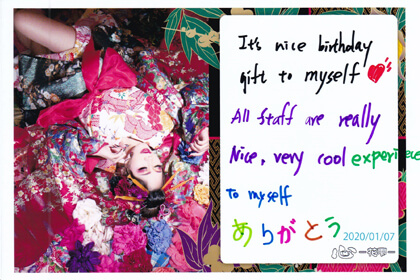 It's nice birthday
gift to myself
All staff are really
Nice, very cool experience
to myself
ありがとう
2020/01/07